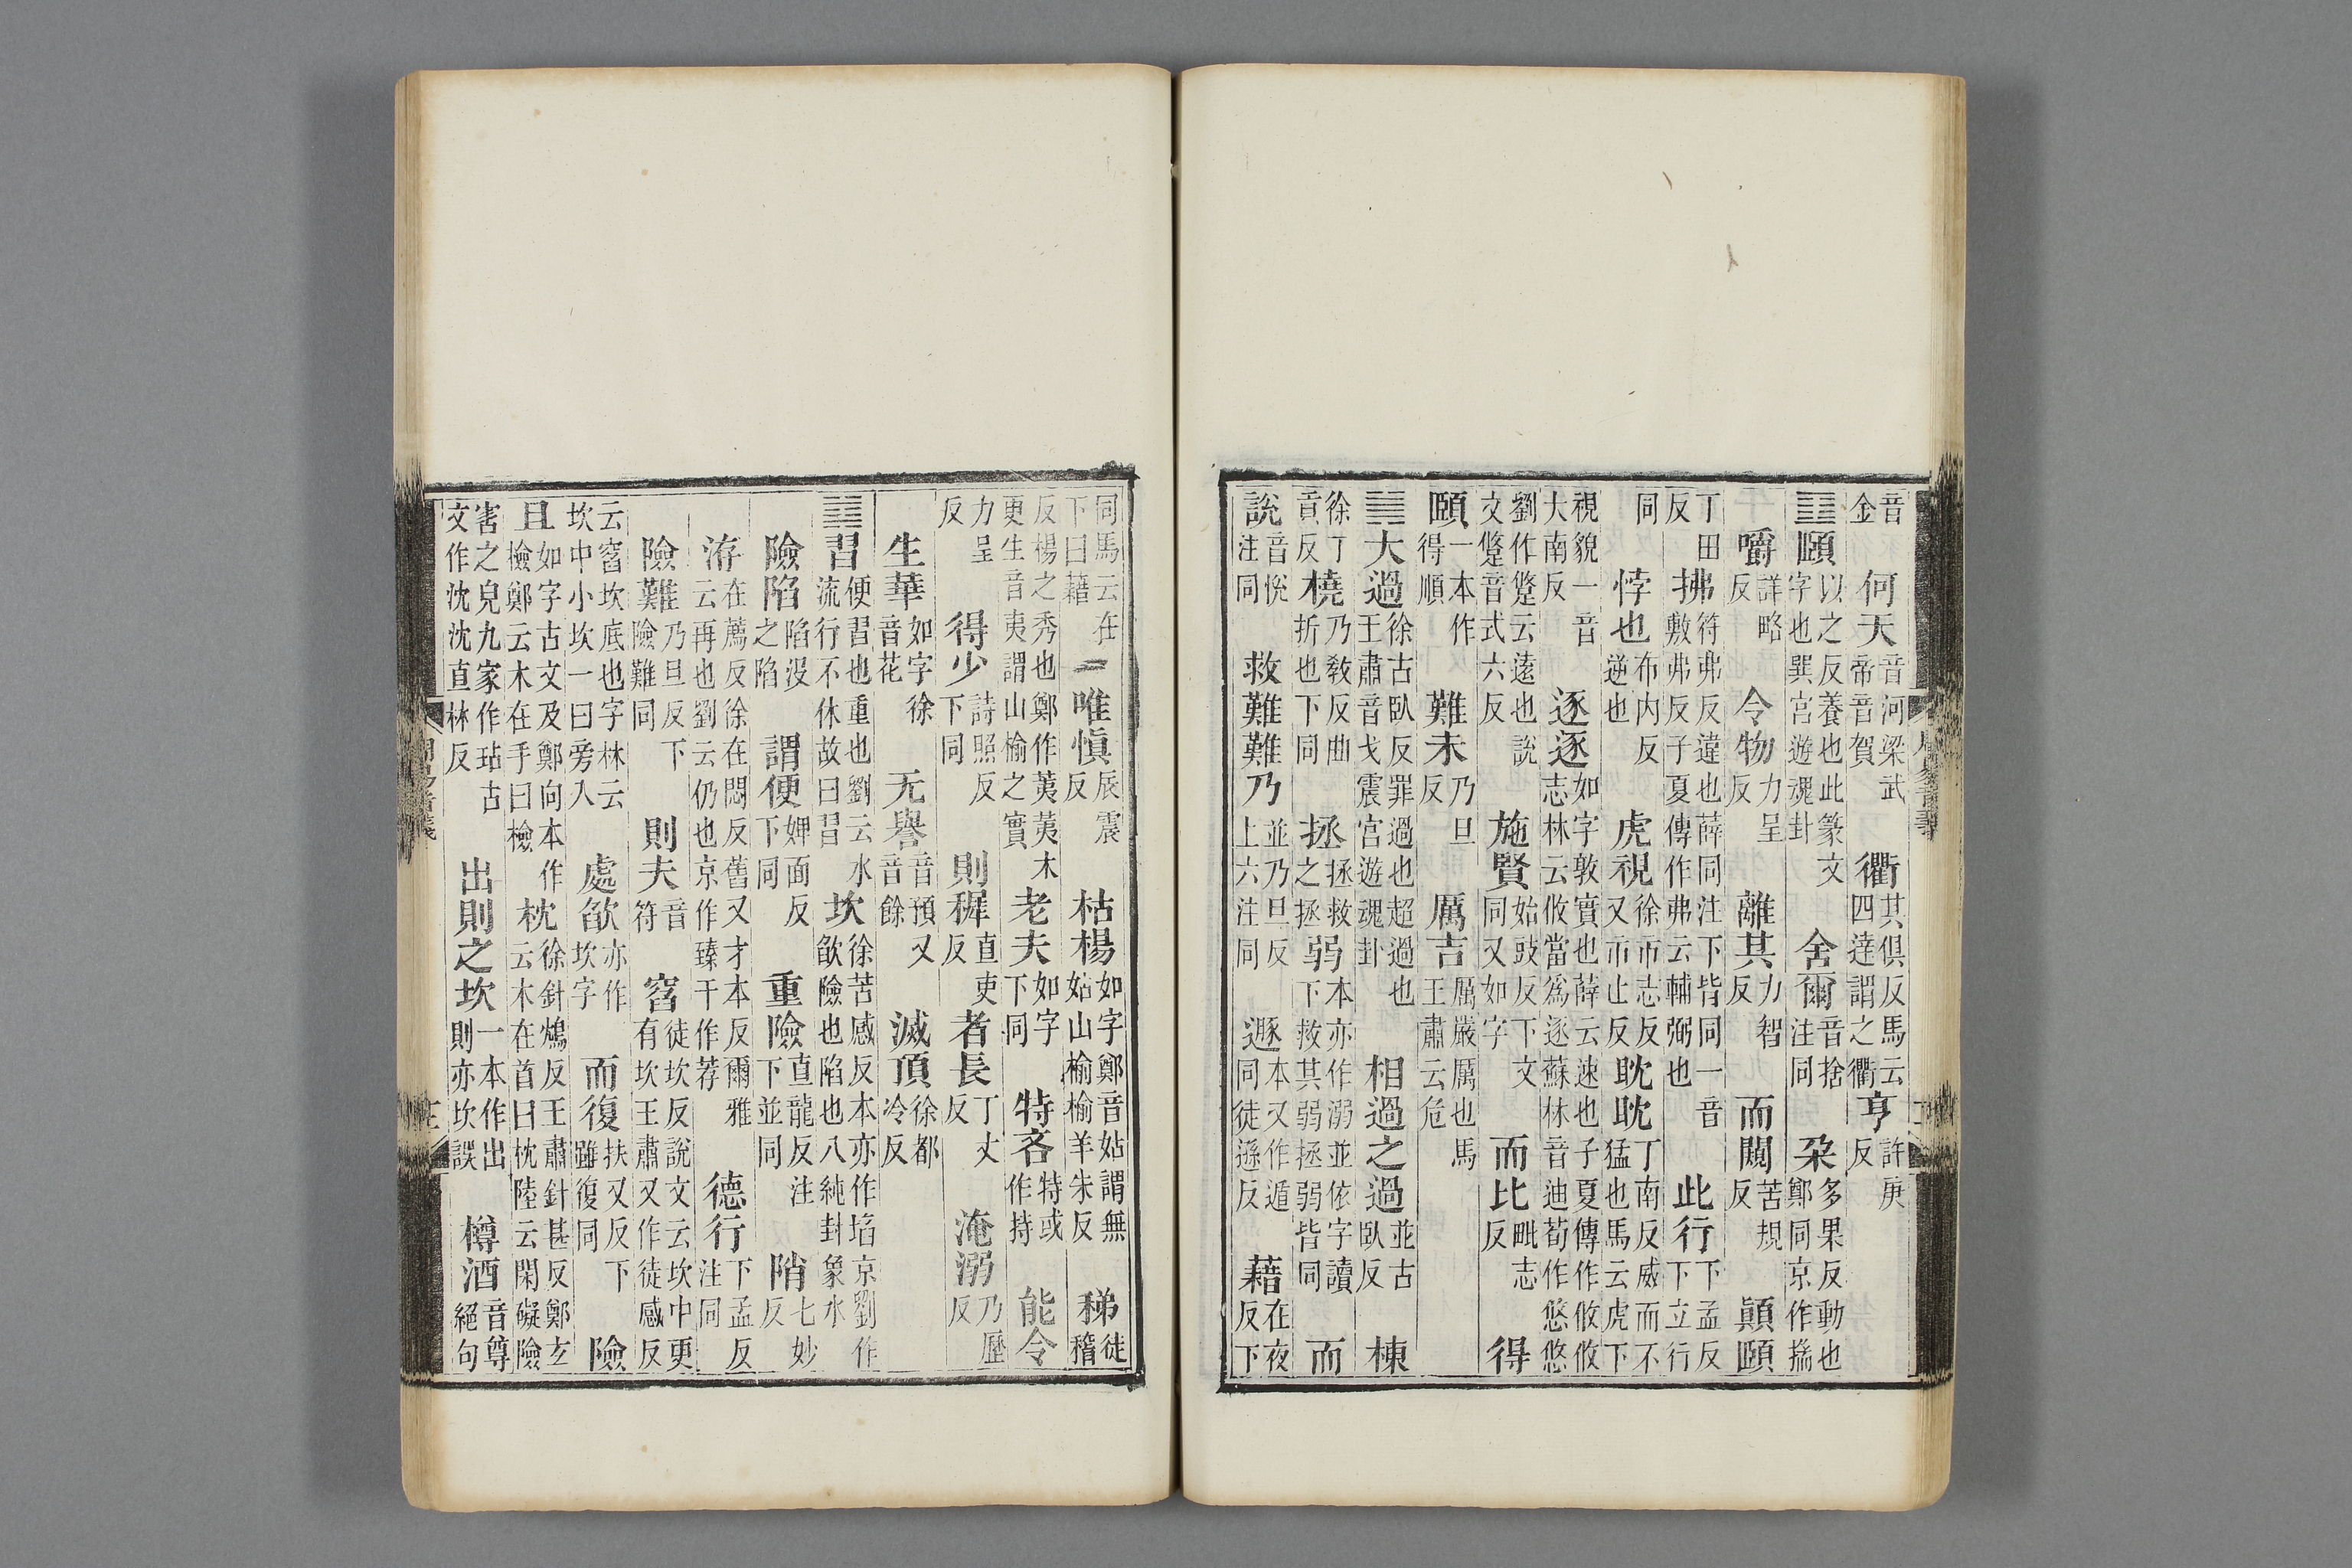 音金何天音河梁武帝音賀衢其俱反馬云四達謂之衢亨許庚反
䷚頤以之反養也此篆文字也巽宮遊魂卦舍爾音捨注同朶多果反動也鄭同京作揣
嚼詳略反令物力呈反離其力智反而闚苦規反顚頤
丁田反拂符弗反違也薛同注下皆同一音敷弗反子夏傳作弗云輔弼也此行下孟反下立行
同悖也布内反逆也虎視徐市志反又市止反耽耽丁南反威而不猛也馬云虎下
視貌一音大南反逐逐如字敦實也薛云速也子夏傳作攸攸志林云攸當爲逐蘇林音迪荀作悠悠
劉作跾云遠也說文跾音式六反施賢始豉反下文同又如字而比毗志反得
頤一本作得順難未乃旦反厲吉厲嚴厲也馬王肅云危
䷛大過徐古臥反罪過也超過也王肅音戈震宮遊魂卦相過之過並古臥反棟
徐丁貢反橈乃敎反曲折也下同拯拯救之拯弱本亦作溺並依字讀下救其弱拯弱皆同而
說音悅注同救難難乃並乃旦反上六注同遯本又作遁同徒遜反藉在夜反下
周易音義
同馬云在下曰藉唯慎辰震反枯楊如字鄭音姑謂無姑山榆榆羊朱反稊徒稽
反楊之秀也鄭作荑荑木更生音夷謂山榆之實老夫如字下同特吝特或作持能令
力呈反得少詩照反下同則稺直吏反者長丁丈反淹溺乃歷反
生華如字徐音花无譽音預又音餘滅頂徐都冷反
䷜習便習也重也劉云水流行不休故曰習坎徐苦感反本亦作埳京劉作欿險也陷也八純卦象水
險陷陷沒之陷謂便婢面反下同重險直龍反注下並同陗七妙反
洊在薦反徐在悶反舊又才本反爾雅云再也劉云仍也京作臻干作荐德行下孟反注同
險難乃旦反下險難同則夫音符窞徒坎反說文云坎中更有坎王肅又作徒感反
云窞坎底也字林云坎中小坎一曰旁入處欿亦作坎字而復扶又反下雖復同險
且如字古文及鄭向本作檢鄭云木在手曰檢枕徐針鴆反王肅針甚反鄭玄云木在首曰枕陸云閑礙險
害之皃九家作玷古文作沈沈直林反出則之坎一本作出則亦坎誤樽酒音尊絕句
周易音義